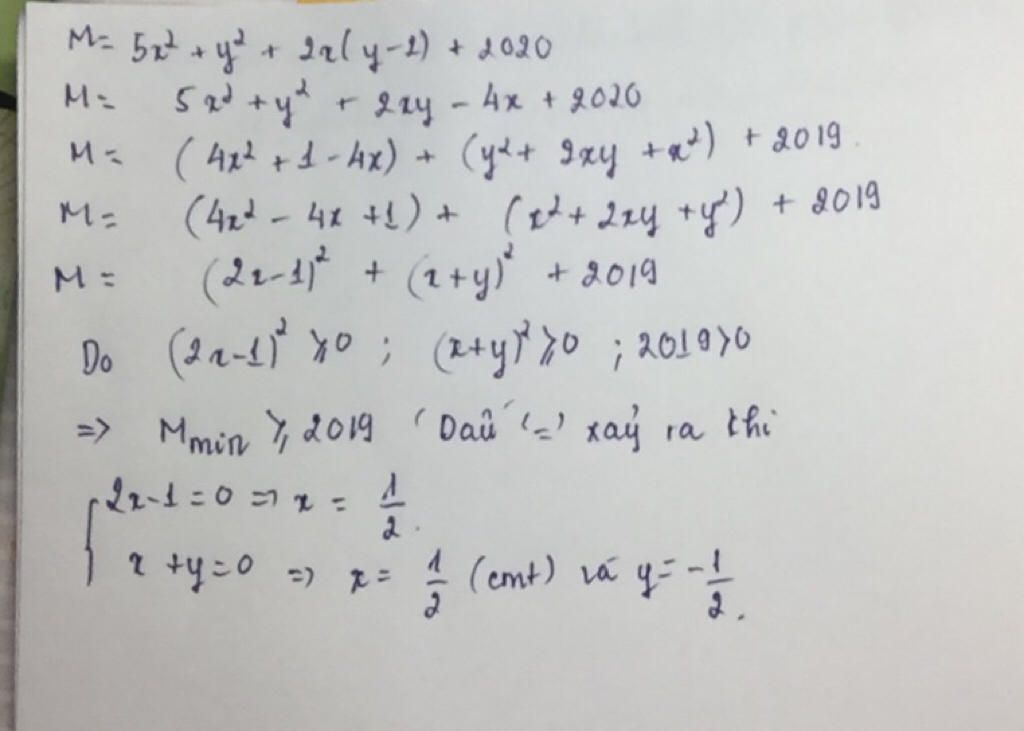 M= 5x² + y² + 2x(y-2) + 2020
M= 5x² + y² + 2xy - 4x + 2020
M= (4x² + 1 - 4x) + (y² + 2xy + x²) + 2019.
M= (4x² - 4x + 1) + (x² + 2xy + y²) + 2019
M= (2x-1)² + (x+y)² + 2019
Do (2x-1)² ⩾ 0 ; (x+y)² ⩾ 0 ; 2019 > 0
=> Mmin ⩾ 2019 (Dấu '=' xảy ra thì
{ 2x-1 = 0 => x = 1/2.
x + y = 0 => x = 1/2 (cmt) và y = -1/2.